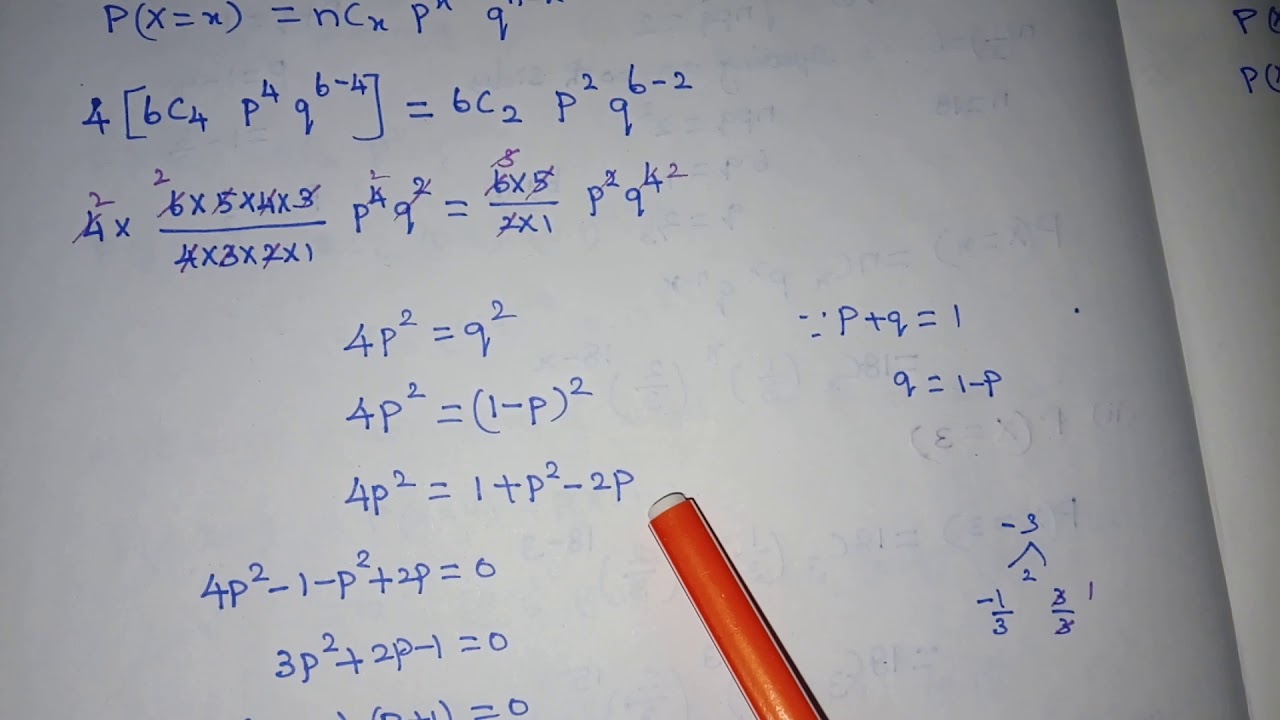 P(X=x) = nCx p^x q^n-x
4 [6C4 p^4 q^6-4] = 6C2 p^2 q^6-2
4 × 6×5×4×3 / 4×3×2×1 p^4 q^2 = 6×5 / 2×1 p^2 q^4
4p^2 = q^2
∵ p+q = 1
4p^2 = (1-p)^2
q = 1-p
4p^2 = 1+p^2-2p
4p^2-1-p^2+2p = 0
3p^2+2p-1 = 0
(p+1) = 0
-3
2
-1/3 3/3 1
P(
P(